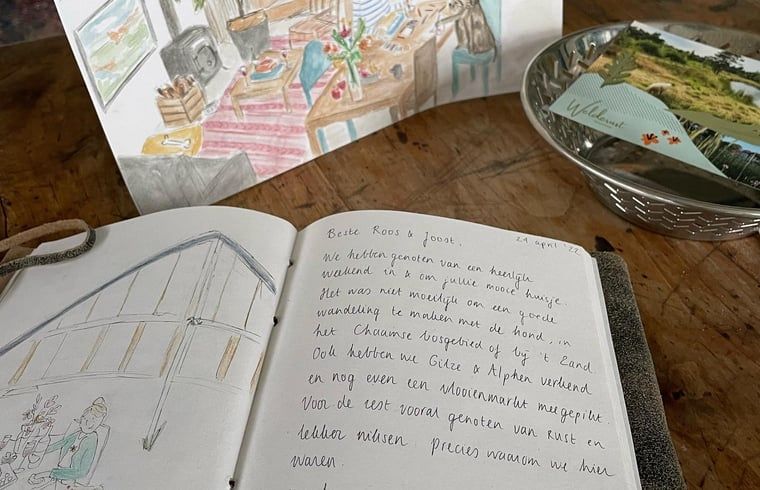 Welderust
Beste Roos & Joost,
24 april '22
We hebben genoten van een heerlijk
weekend in & om jullie mooie huisje.
Het was niet moeilijk om een goede
wandeling te maken met de hond, in
het Chaamse bosgebied of bij 't Zand.
Ook hebben we Gilze & Alphen verkend
en nog even een vlooienmarkt meegepikt.
Voor de rest vooral genoten van rust en
lekker niksen. Precies waarom we hier
waren.